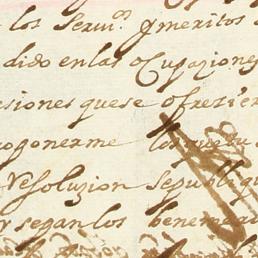 los Serui.os y meritos
dido en las ocupaziones
siones que se ofrezier
ponerme los
Resoluzion se publiqu
segan los beneme